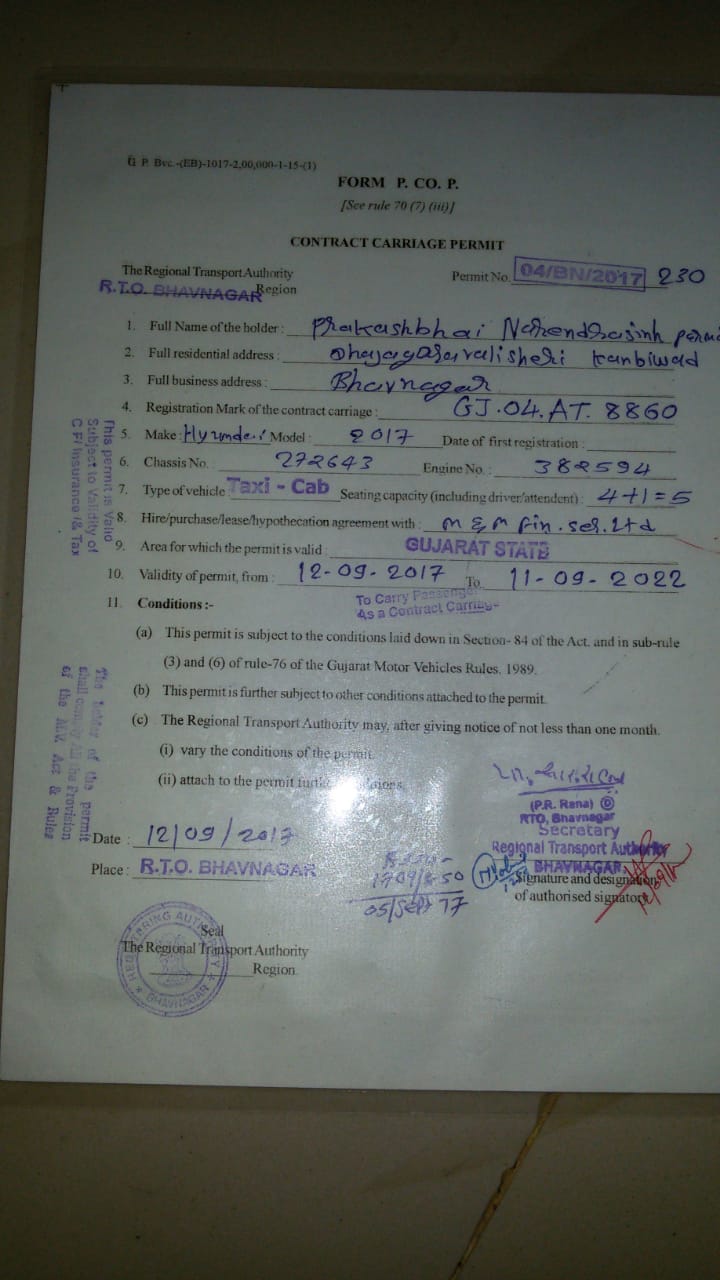 G. P. Bvc.-(EB)-1017-2,00,000-1-15-(1)
FORM P. CO. P.
[See rule 70 (7) (iii)]
CONTRACT CARRIAGE PERMIT
The Regional Transport Authority
R.T.O. BHAVNAGAR Region
Permit No. 04/BN/2017 230
1. Full Name of the holder : Prakashbhai Narendrasinh
2. Full residential address : kanbiwad
3. Full business address : Bhavnagar
4. Registration Mark of the contract carriage : GJ.04.AT. 8860
5. Make : Hyundai Model : 2017 Date of first registration :
6. Chassis No. 272643 Engine No. : 382594
7. Type of vehicle Taxi - Cab Seating capacity (including driver/attendent) : 4+1=5
8. Hire/purchase/lease/hypothecation agreement with : M & M fin. ser. Ltd
9. Area for which the permit is valid : GUJARAT STATE
10. Validity of permit, from : 12-09-2017 To 11-09-2022
To Carry Passenger
As a Contract Carriage
11. Conditions :-
(a) This permit is subject to the conditions laid down in Section- 84 of the Act. and in sub-rule
(3) and (6) of rule-76 of the Gujarat Motor Vehicles Rules. 1989.
(b) This permit is further subject to other conditions attached to the permit.
(c) The Regional Transport Authority may, after giving notice of not less than one month.
(i) vary the conditions of the permit.
(ii) attach to the permit further
This permit is Valid
Subject to Validity of
C F/ Insurance & Tax
The holder of the permit
shall comply all the Provision
of the M.V. Act & Rules
Date : 12/09/2017
Place : R.T.O. BHAVNAGAR
05/Sep 17
(P.R. Rana)
RTO, Bhavnagar
Secretary
Regional Transport Authority
BHAVNAGAR
Signature and designation
of authorised signatory
Seal
The Regional Transport Authority
Region.
REGISTERING AUTHORITY
BHAVNAGAR